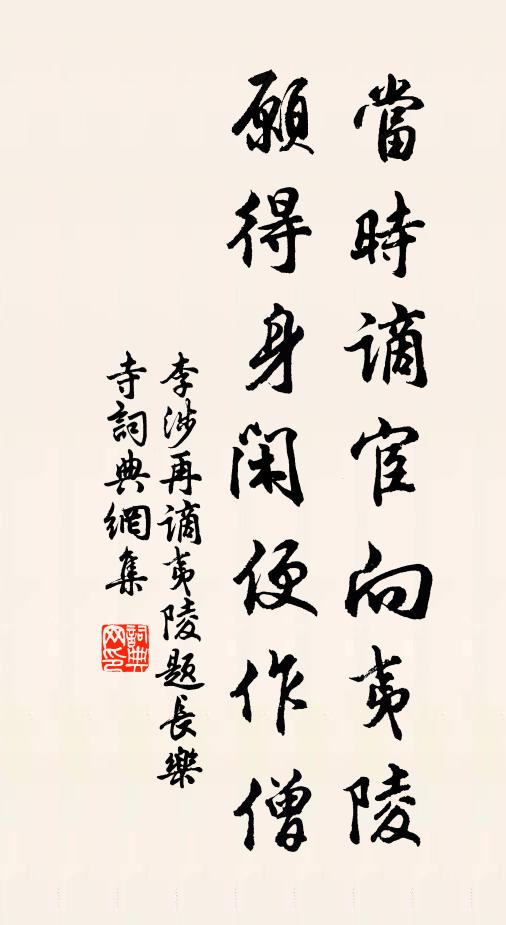 當時謫宦向夷陵
願得身閑便作僧
李涉再謫夷陵題長樂
寺詞典網集
詞典
网印